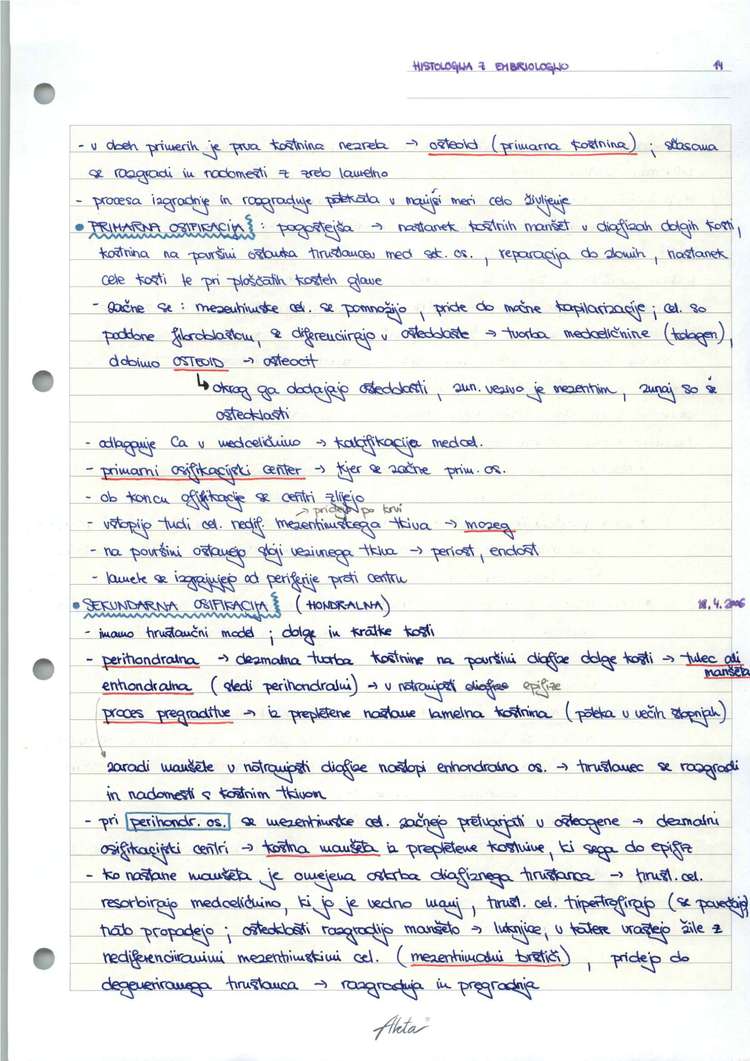 HISTOLOGIJA Z EMBRIOLOGIJO 14
- v obeh primerih je prva kostnina nezrela → osteoid (primarna kostnina) ; sčasoma
se razgradi in nadomesti z zrelo lamelno
- procesa izgradnje in razgradnje potekata v manjši meri celo življenje
• PRIMARNA OSIFIKACIJA : pogostejša → nastanek kostnih manšet v diafizah dolgih kosti,
kostnina na površini ostanka hrustancev med sek. os. , reparacija do zlomih , nastanek
cele kosti le pri ploščatih kosteh glave
- začne se : mezenhimske cel. se pomnožijo , pride do močne kapilarizacije ; cel. so
podobne fibroblastom, se diferencirajo v osteoblaste → tvorba medceličnine (kolagen),
dobimo OSTEOID → osteocit
↳ okrog ga obdajajo osteoblasti , zun. vezivo je mezenhim , zunaj so še
osteoklasti
- odlaganje Ca v medceličnino → kalcifikacija medcel.
- primarni osifikacijski center → kjer se začne prim. os.
- ob koncu osifikacije se centri zlijejo
→ pridejo po krvi
- vstopijo tudi cel. nedif. mezenhimskega tkiva → mozeg
- na površini ostanejo sloji vezivnega tkiva → periost, endost
- lamele se izgrajujejo od periferije proti centru
• SEKUNDARNA OSIFIKACIJA (HONDRALNA) 18.4.2006
- imamo hrustančni model ; dolge in kratke kosti
- perihondralna → dezmalna tvorba kostnine na površini diafize dolge kosti → tulec ali
manšeta
enhondralna (sledi perihondralni) → v notranjosti diafize epifize
proces pregraditve → iz prepletene nastane lamelna kostnina (poteka v večih stopnjah)
zaradi manšete v notranjosti diafize nastopi enhondralna os. → hrustanec se razgradi
in nadomesti s kostnim tkivom
- pri perihondr. os. se mezenhimske cel. začnejo pretvarjati v osteogene → dezmalni
osifikacijski centri → kostna manšeta iz prepletene kostnine, ki sega do epifiz
- ko nastane manšeta je omejena oskrba diafiznega hrustanca → hrust. cel.
resorbirajo medceličnino, ki jo je vedno manj, hrust. cel. hipertrofirajo (se povečajo)
nato propadejo ; osteoklasti razgradijo manšeto → luknjice, v katere vraščejo žile z
nediferenciranimi mezenhimskimi cel. (mezenhimalni brstiči) , pridejo do
degeneriranega hrustanca → razgradnja in pregradnja
Akta